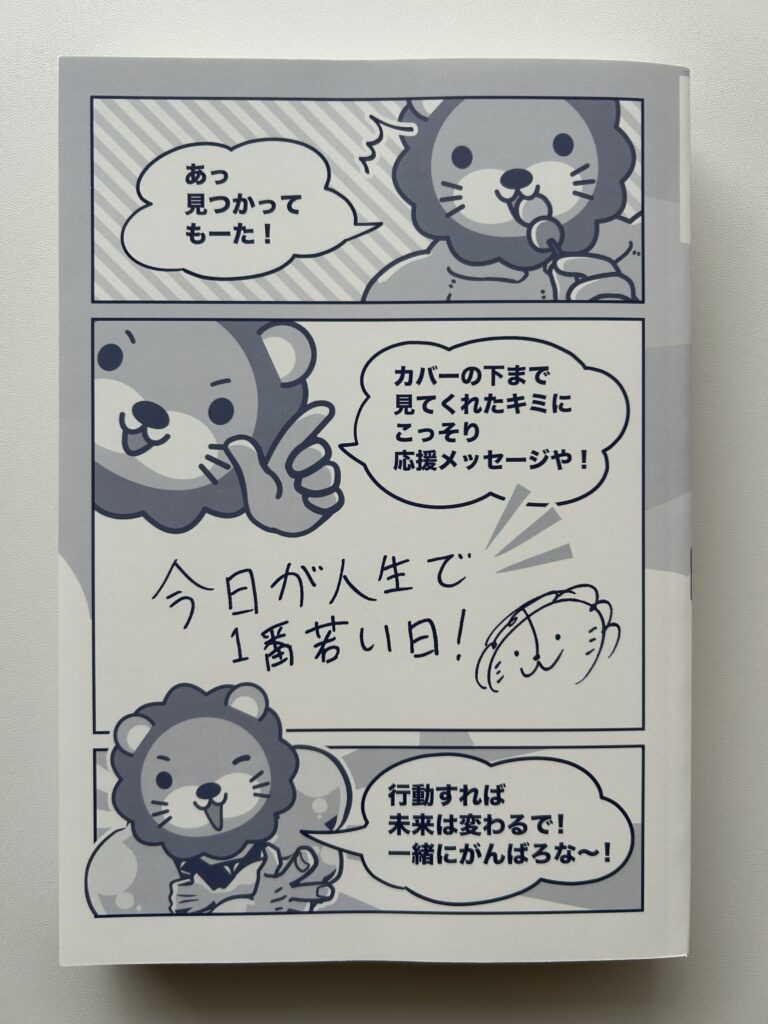 あっ
見つかって
もーた！
カバーの下まで
見てくれたキミに
こっそり
応援メッセージや！
今日が人生で
1番若い日！
行動すれば
未来は変わるで！
一緒にがんばろな〜！